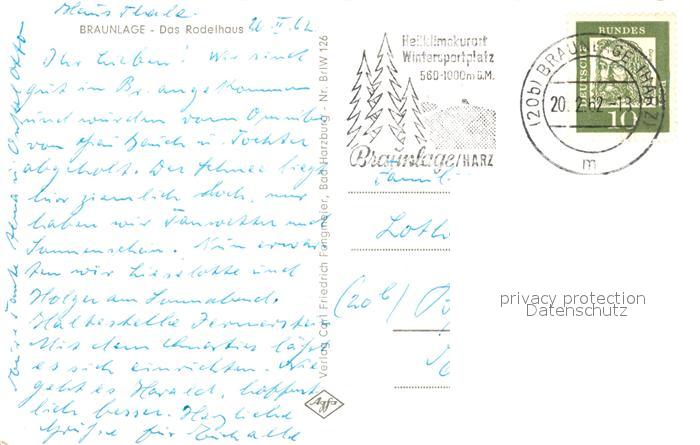 Haus Thale.
20. II. 62
BRAUNLAGE - Das Rodelhaus
Ihr Lieben! Wir sind
gut in Br. angekommen
und wurden vom Omnibus
von Frau Bauch u. Tochter
abgeholt. Der Schnee liegt
hier ziemlich hoch, nur
haben wir Tauwetter und
Sonnenschein. Nun erwar-
ten wir Lieselotte und
Holger am Sonnabend.
Haltestelle
Mit dem läßt
es sich einrichten. Wie
geht es Harald, hoffent-
lich besser. Herzliche
Grüße für Euch alle
Eure Tante u. Onkel Otto
Verlag Carl Friedrich Fangmeier, Bad Harzburg - Nr. BrlW 126
Agfa
Heilklimakurort
Wintersportplatz
560-1000m ü.M.
Braunlage/HARZ
(20b) BRAUNLAGE (HARZ)
20.2.62-13
m
DEUTSCHE BUNDES
10
Famil
Loth
(20b)
privacy protection
Datenschutz